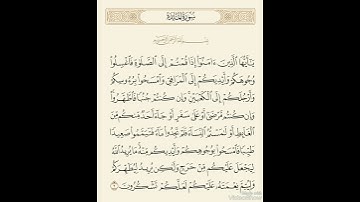 سورة المائدة
بسم الله الرحمن الرحيم
يَٰٓأَيُّهَا ٱلَّذِينَ ءَامَنُوٓا۟ إِذَا قُمْتُمْ إِلَى ٱلصَّلَوٰةِ فَٱغْسِلُوا۟
وُجُوهَكُمْ وَأَيْدِيَكُمْ إِلَى ٱلْمَرَافِقِ وَٱمْسَحُوا۟ بِرُءُوسِكُمْ
وَأَرْجُلَكُمْ إِلَى ٱلْكَعْبَيْنِ وَإِن كُنتُمْ جُنُبًا فَٱطَّهَّرُوا۟
وَإِن كُنتُم مَّرْضَىٰٓ أَوْ عَلَىٰ سَفَرٍ أَوْ جَآءَ أَحَدٌ مِّنكُم مِّنَ
ٱلْغَآئِطِ أَوْ لَٰمَسْتُمُ ٱلنِّسَآءَ فَلَمْ تَجِدُوا۟ مَآءً فَتَيَمَّمُوا۟ صَعِيدًا
طَيِّبًا فَٱمْسَحُوا۟ بِوُجُوهِكُمْ وَأَيْدِيكُم مِّنْهُ مَا يُرِيدُ ٱللَّهُ
لِيَجْعَلَ عَلَيْكُم مِّنْ حَرَجٍ وَلَٰكِن يُرِيدُ لِيُطَهِّرَكُمْ
وَلِيُتِمَّ نِعْمَتَهُۥ عَلَيْكُمْ لَعَلَّكُمْ تَشْكُرُونَ ٦